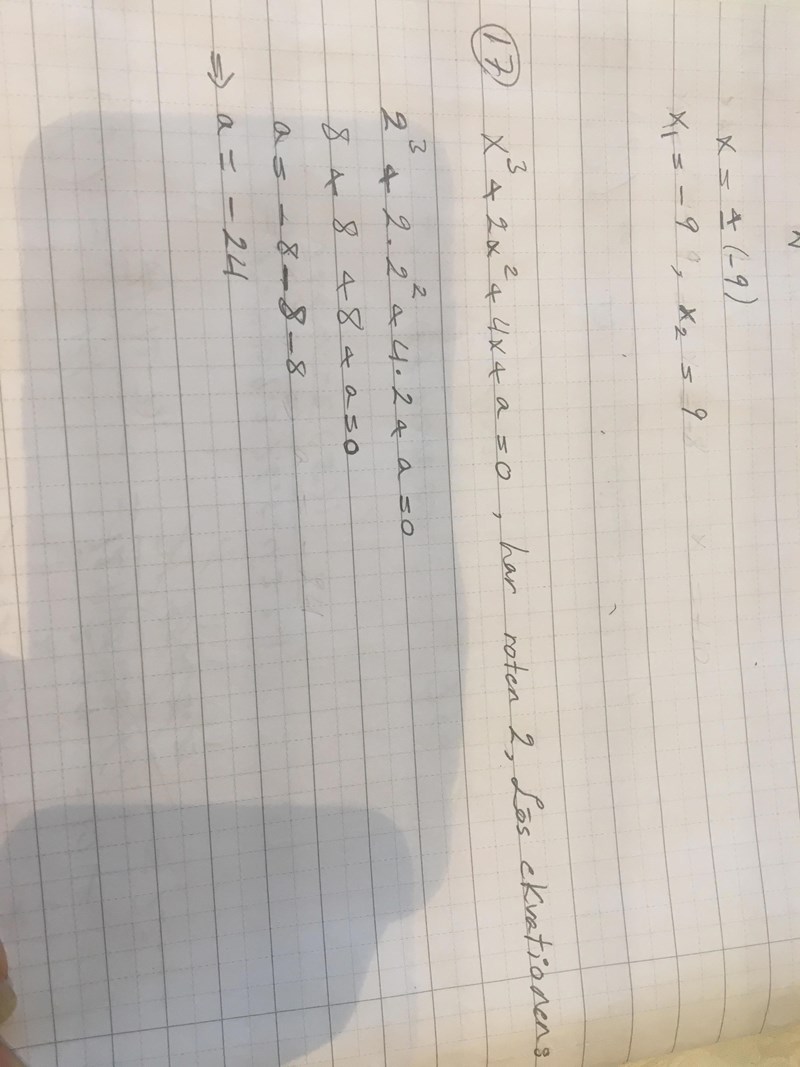 x = ± (-9)
x₁ = -9, x₂ = 9
17 x³ + 2x² + 4x + a = 0, har roten 2, Lös ekvationen:
2³ + 2·2² + 4·2 + a = 0
8 + 8 + 8 + a = 0
a = -8 - 8 - 8
⇒ a = -24